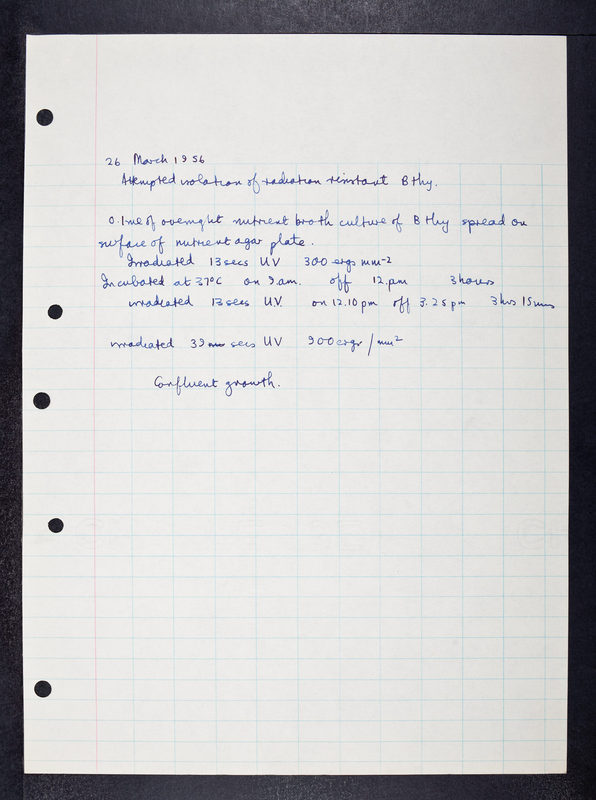 26 March 1956
Attempted isolation of radiation resistant B thy.
0.1 ml of overnight nutrient broth culture of B thy spread on
surface of nutrient agar plate.
Irradiated 13 secs UV 300 ergs mm-2
Incubated at 37°C on 9 am. off 12.pm 3 hours
irradiated 13 secs U.V. on 12.10 pm off 3.25 pm 3 hrs 15 mins
irradiated 39 secs UV 900 ergs / mm2
Confluent growth.